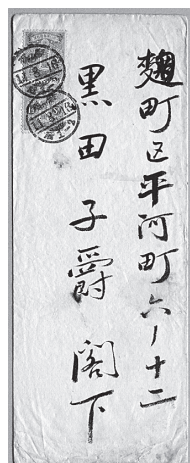 麹町区平河町六ノ十二
黒田子爵閣下